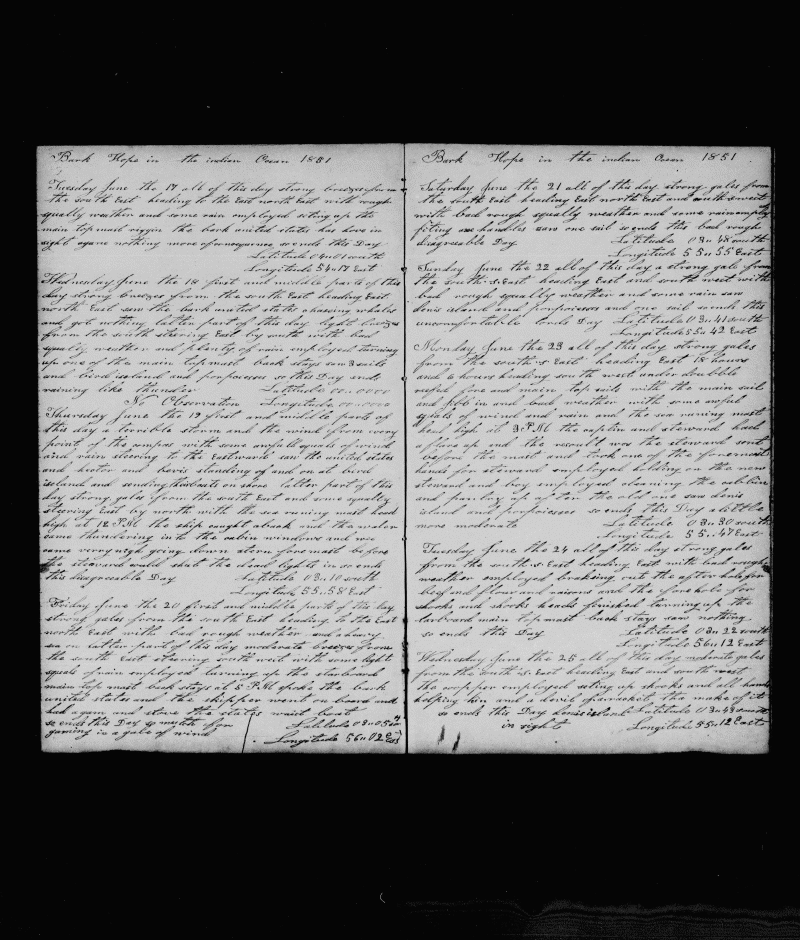 Bark Hope in the indian Ocean 1851
Tuesday June the 17 all of this day strong breezes from
the south East heading to the East north East with rough
squally weather and some rain employed seting up the
main top mast riggin the bark united states has hove in
sight agane nothing more of consequence so ends this Day
Latitude 04 n 01 south
Longitude 54 n 17 East
Wednesday June the 18 first and middle parts of this
day strong breezes from the south East heading East
north East saw the bark united states chasing whales
and got nothing latter part of this day light breezes
from the south steering East by south with bad
squaly weather and plenty of rain employed turning
up one of the main top mast back stays saw 3 sails
and bird island and porpoieses so this Day ends
raining like thunder Latitude 00 n 0000
No Observation Longitude 00 n 0000
Thursday June the 19 first and middle parts of
this day a terrible storm and the wind from every
point of the compas with some awfull squals of wind
and rain steering to the Eastward saw the united states
and hector and bevis standing of and on at bird
island and sending thare boats on shore latter part of this
day strong gales from the south East and some squally
steering East by north with the sea runing mast head
high at 12 P.M the ship caught aback and the water
came thundering into the cabin windows and we
came very nigh going down stern foremast before
the steward could shut the dead lights in so ends
this disagreeable Day Latitude 03 n 10 south
Longitude 55 n 58 East
Friday June the 20 first and middle parts of this day
strong gales from the south East heading to the East
north East with bad rough weather and a heavy
sea on latter part of this day moderate breezes from
the south East steering south west with some light
squals of rain employed turning up the starboard
main top mast back stays at 5 P.M spoke the bark
united states and the skipper went on board and
had a gam and stove the states waist boat
so ends this Day so mutch for Latitude 03 n 05 so
gaming in a gale of wind Longitude 56 n 02 East
Bark Hope in the indian Ocean 1851
Saturday June the 21 all of this day strong gales from
the south East heading East north East and south west
with bad rough squally weather and some rain employ
fiting on handles saw one sail so ends this bad rough
disagreeable Day Latitude 03 n 48 south
Longitude 55 n 55 East
Sunday June the 22 all of this day a strong gale from
the south & East heading East and south west with
bad rough squally weather and some rain saw
denis island and porpoieses and one sail so ends this
uncomfortable lords Day Latitude 03 n 41 south
Longitude 55 n 42 East
Monday June the 23 all of this day strong gales
from the south & East heading East 18 hours
and 6 hours heading south west under doubble
refed fore and main top sails with the main sail
and gibb in and bad weather with some awful
squals of wind and rain and the sea runing mast
head high at 3 P.M the captin and steward had
a flare up and the resoult was the steward sent
before the mast and took one of the foremast
hands for steward employed holding on the new
steward and boy employed cleaning the cabbin
and pantry up after the old one saw denis
island and porpoieses so ends this Day a little
more moderate Latitude 03 n 30 south
Longitude 55 n 47 East
Tuesday June the 24 all of this day strong gales
from the south & East heading East with bad rough
weather employed breaking out the after hole for
beef and flour and raisons and the fore hole for
shooks and shooks heads finished turning up the
larboard main top mast back stays saw nothing
so ends this Day Latitude 03 n 22 south
Longitude 56 n 12 East
Wednesday June the 25 all of this day moderate gales
from the south & East heading East and south west
the cooper employed seting up shooks and all hands
helping him and a devil of a racket tha make of it
so ends this Day denis island Latitude 03 n 43 south
in sight Longitude 55 n 12 East